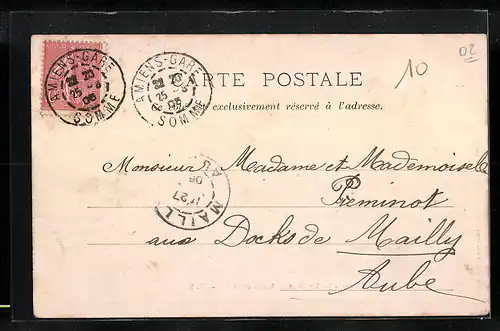 20
10
AMIENS-GARE
SOMME
AMIENS-GARE
25
SOMME
CARTE POSTALE
exclusivement réservé à l'adresse.
Monsieur Madame et Mademoiselle
Préminot
aux Docks de Mailly
Aube
MAILLY
27
06